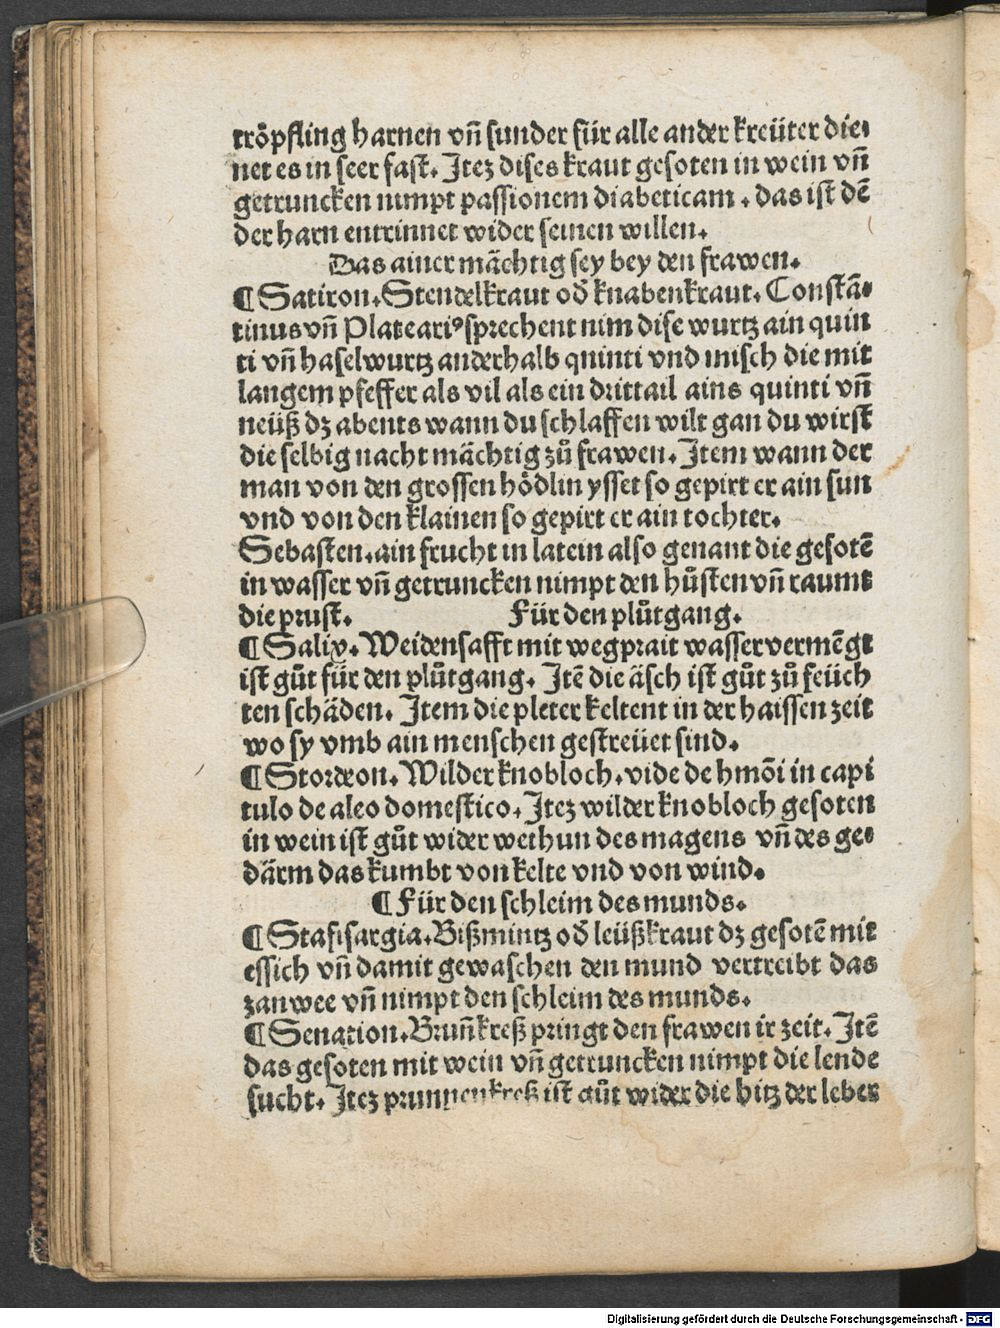 tröpfling harnen vñ sunder für alle ander kreüter die⸗
net es in seer fast. Itez dises kraut gesoten in wein vñ
getruncken nimpt passionem diabeticam. das ist dē
der harn entrinnet wider seinen willen.
Das ainer mächtig sey bey den frawen.
¶ Satiron. Stendelkraut od̄ knabenkraut. Constā⸗
tinus vñ Plateariꝰ sprechent nim dise wurtz ain quin
ti vñ haselwurtz anderhalb quinti vnd misch die mit
langem pfeffer als vil als ein drittail ains quinti vñ
neüß dz abents wann du schlaffen wilt gan du wirst
die selbig nacht mächtig zů frawen. Item wann der
man von den grossen hödlin ysset so gepirt er ain sun
vnd von den klainen so gepirt er ain tochter.
Sebasten. ain frucht in latein also genant die gesotē
in wasser vñ getruncken nimpt den hůsten vñ raumt
die prust. Für den plůtgang.
¶ Salix. Weidensafft mit wegprait wasser vermēgt
ist gůt für den plůtgang. Itē die äsch ist gůt zů feüch
ten schäden. Item die pleter keltent in der haissen zeit
wo sy vmb ain menschen gestreüet sind.
¶ Stordeon. Wilder knobloch. vide de hmōi in capi
tulo de aleo domestico. Itez wilder knobloch gesoten
in wein ist gůt wider wethun des magens vñ des ge⸗
därm das kumbt von kelte vnd von wind.
¶ Für den schleim des munds.
¶ Stafisargia. Bißmintz od̄ leüßkraut dz gesotē mit
essich vñ damit gewaschen den mund vertreibt das
zanwee vñ nimpt den schleim des munds.
¶ Senation. Bruñkreß pringt den frawen ir zeit. Itē
das gesoten mit wein vñ getruncken nimpt die lende
sucht. Itez prunnenkreß ist gůt wider die hitz der leber
Digitalisierung gefördert durch die Deutsche Forschungsgemeinschaft - DFG